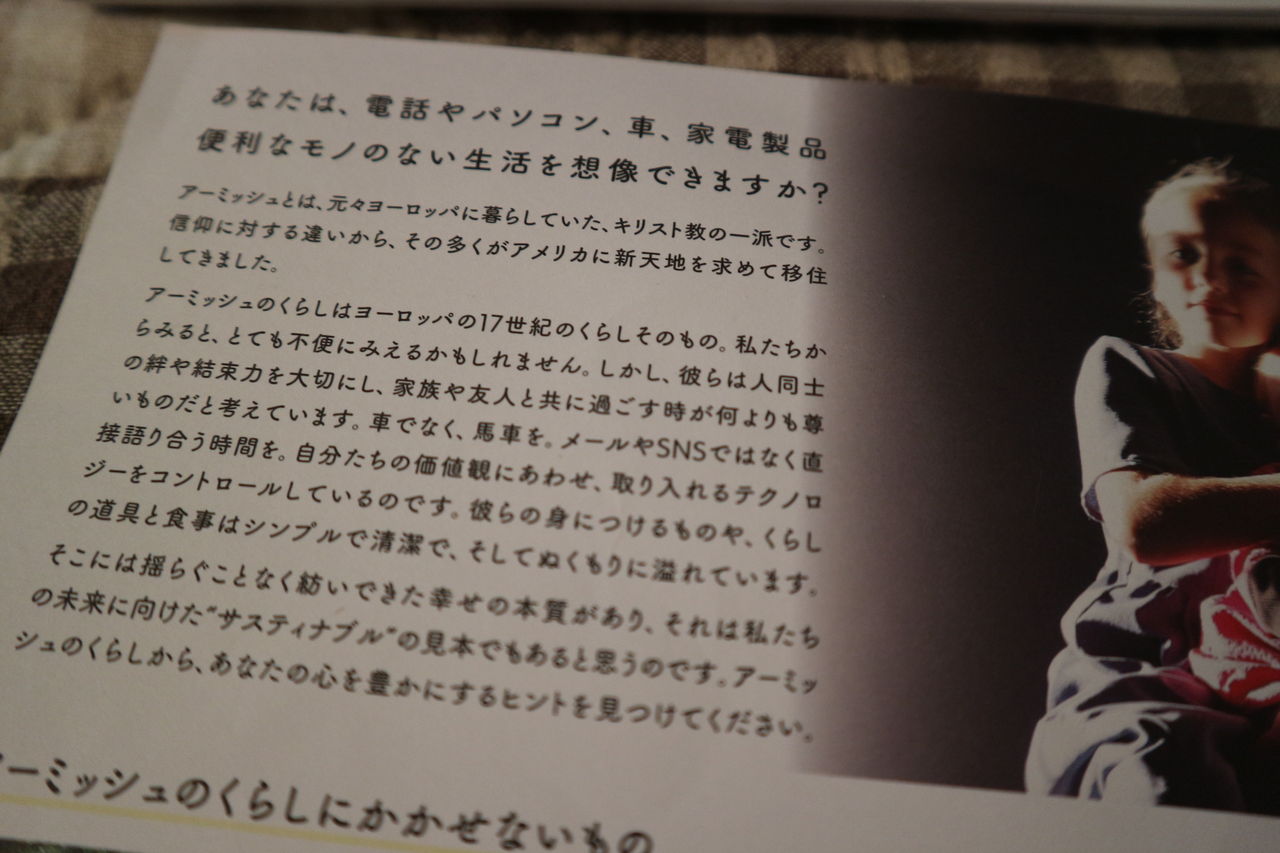 あなたは、電話やパソコン、車、家電製品
便利なモノのない生活を想像できますか?
アーミッシュとは、元々ヨーロッパに暮らしていた、キリスト教の一派です。
信仰に対する違いから、その多くがアメリカに新天地を求めて移住
してきました。
アーミッシュのくらしはヨーロッパの17世紀のくらしそのもの。私たちか
らみると、とても不便にみえるかもしれません。しかし、彼らは人同士
の絆や結束力を大切にし、家族や友人と共に過ごす時が何よりも尊
いものだと考えています。車でなく、馬車を。メールやSNSではなく直
接語り合う時間を。自分たちの価値観にあわせ、取り入れるテクノロ
ジーをコントロールしているのです。彼らの身につけるものや、くらし
の道具と食事はシンプルで清潔で、そしてぬくもりに溢れています。
そこには揺らぐことなく紡いできた幸せの本質があり、それは私たち
の未来に向けた“サスティナブル”の見本でもあると思うのです。アーミッ
シュのくらしから、あなたの心を豊かにするヒントを見つけてください。
アーミッシュのくらしにかかせないもの